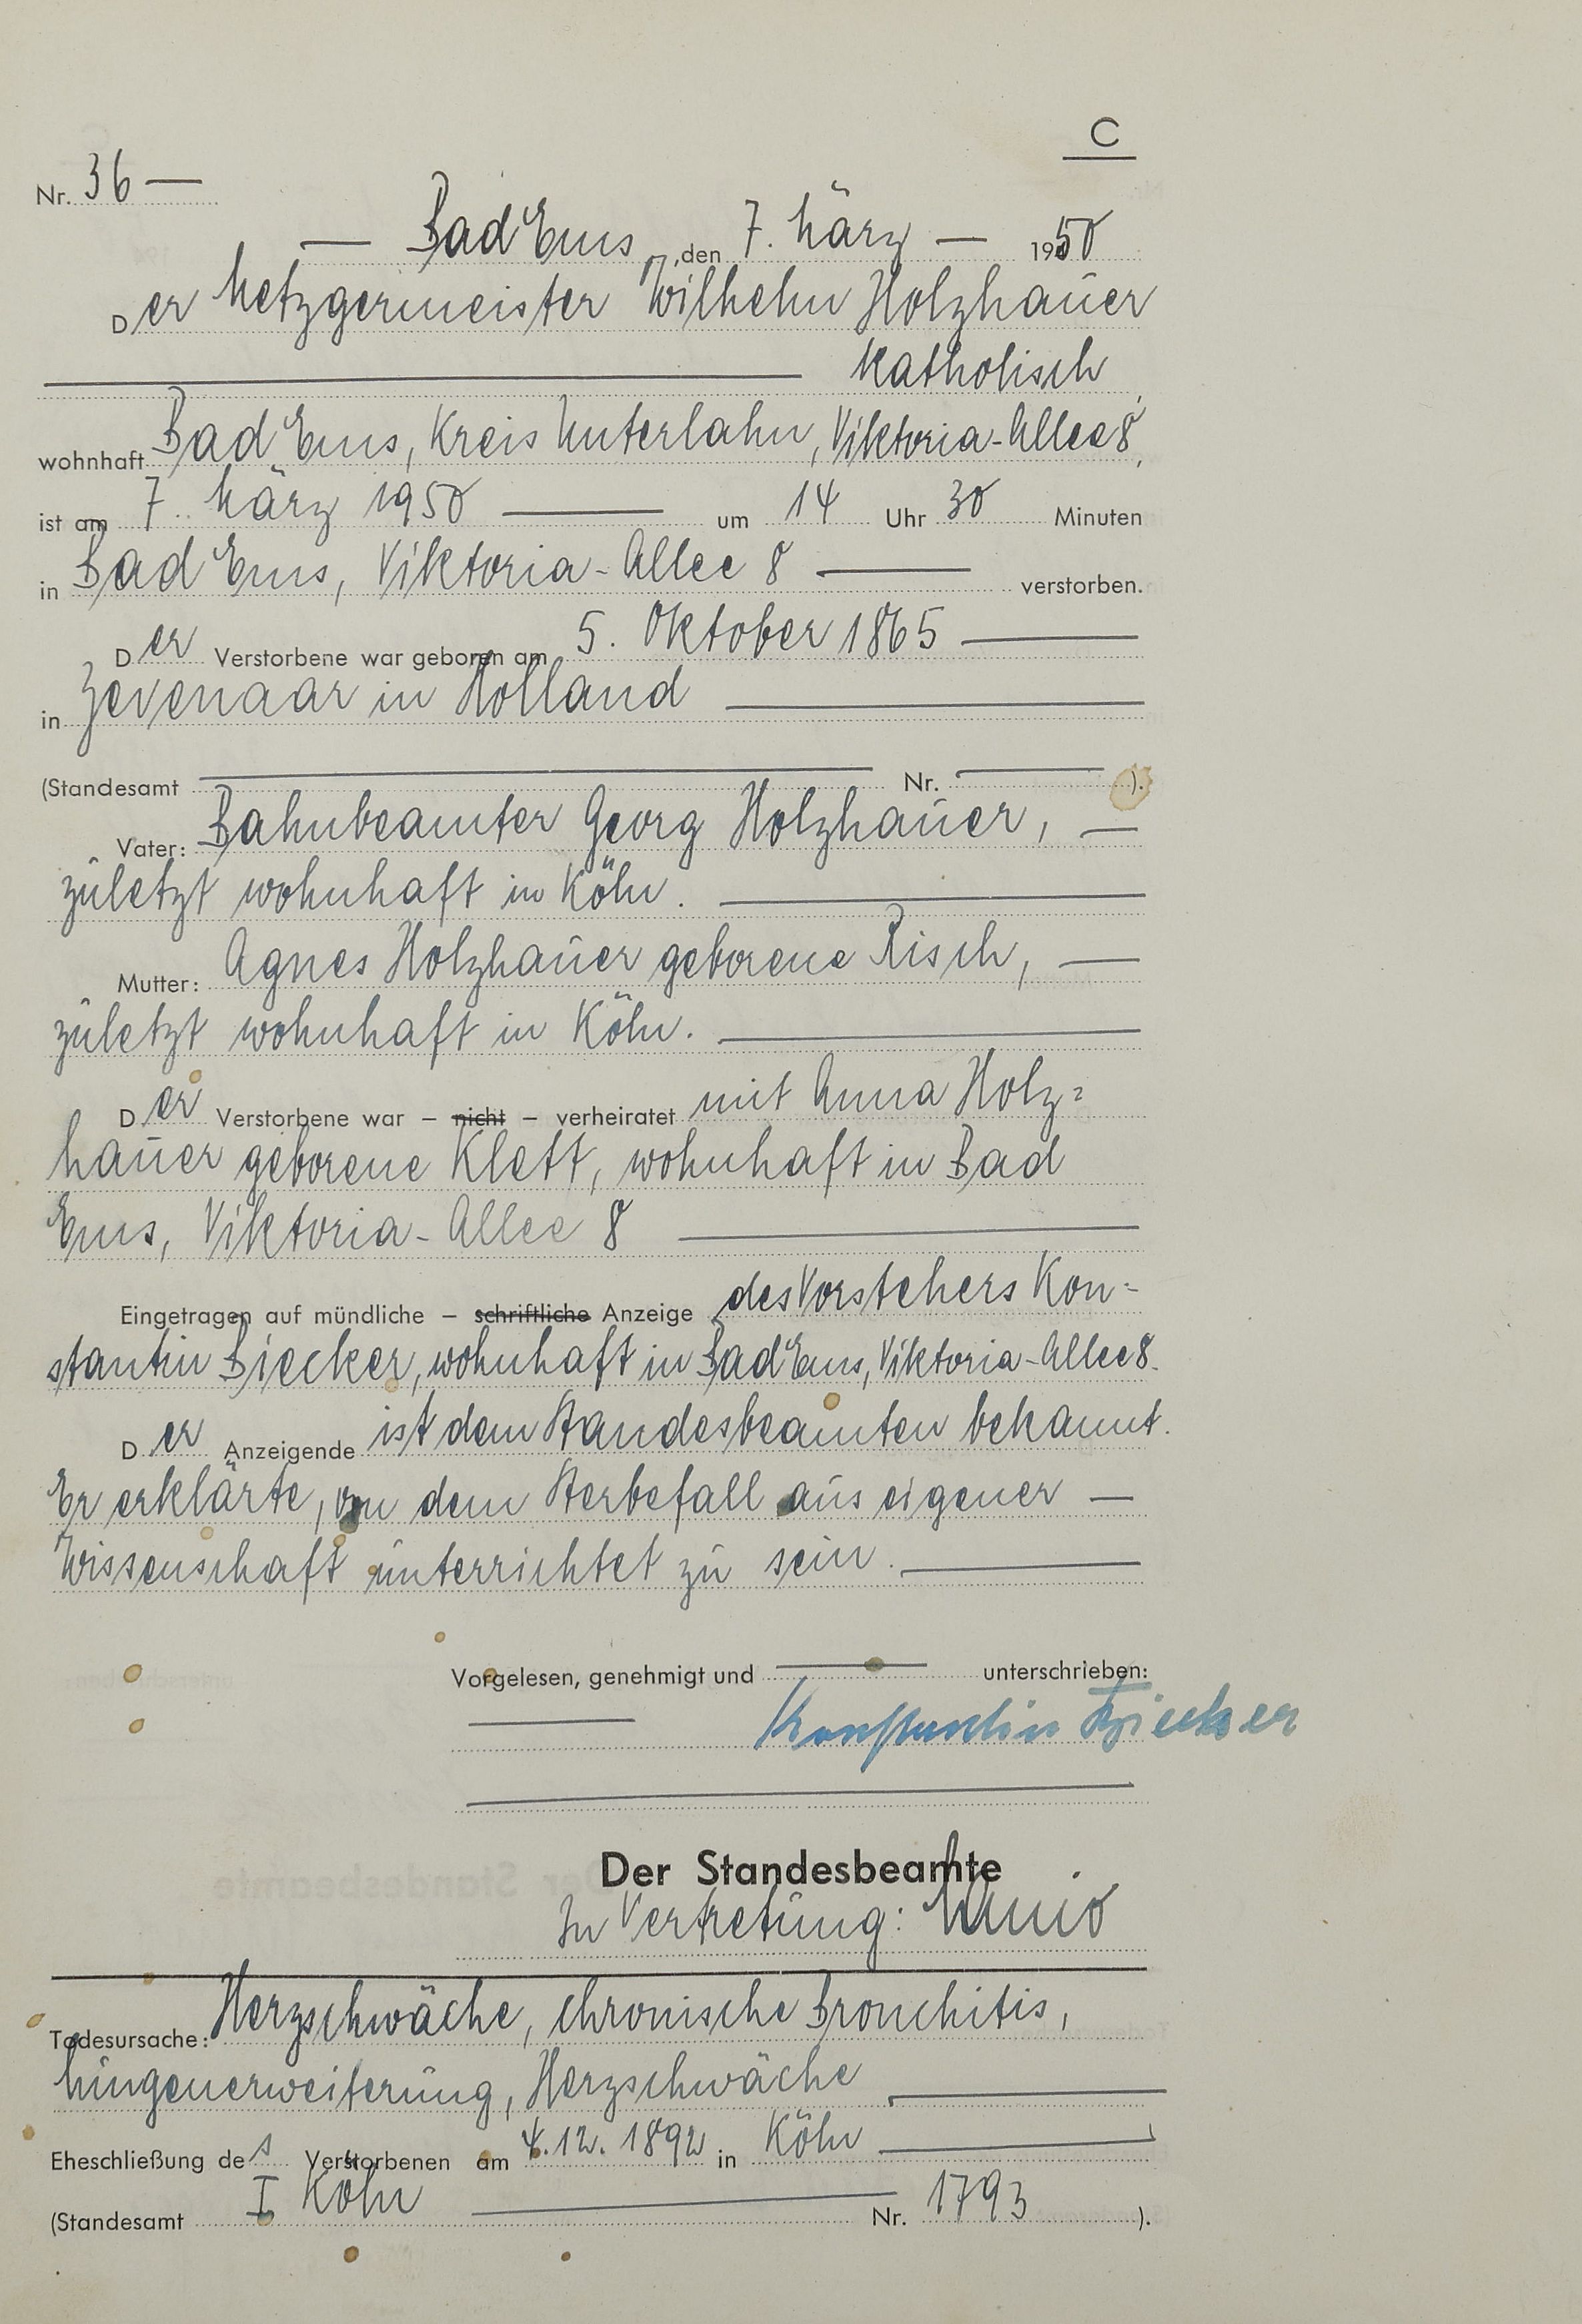 C
Nr. 36 —
— Bad Ems, den 7. März — 1950
Der Metzgermeister Wilhelm Holzhauer
katholisch
wohnhaft Bad Ems, Kreis Unterlahn, Viktoria-Allee 8,
ist am 7. März 1950 — um 14 Uhr 30 Minuten
in Bad Ems, Viktoria-Allee 8 — verstorben.
Der Verstorbene war geboren am 5. Oktober 1865 —
in Zevenaar in Holland —
(Standesamt — Nr. — ).
Vater: Bahnbeamter Georg Holzhauer, —
zuletzt wohnhaft in Köln. —
Mutter: Agnes Holzhauer geborene Risch, —
zuletzt wohnhaft in Köln. —
Der Verstorbene war – nicht – verheiratet mit Anna Holz=
hauer geborene Klett, wohnhaft in Bad
Ems, Viktoria-Allee 8 —
Eingetragen auf mündliche – schriftliche Anzeige des Vorstehers Kon=
stantin Biecker, wohnhaft in Bad Ems, Viktoria-Allee 8.
Der Anzeigende ist dem Standesbeamten bekannt.
Er erklärte, von dem Sterbefall aus eigener —
Wissenschaft unterrichtet zu sein. —
Vorgelesen, genehmigt und — unterschrieben:
Konstantin Biecker
Der Standesbeamte
In Vertretung:
Todesursache: Herzschwäche, chronische Bronchitis,
Lungenerweiterung, Herzschwäche —
Eheschließung des Verstorbenen am 4.12.1892 in Köln —
(Standesamt I Köln — Nr. 1793 ).